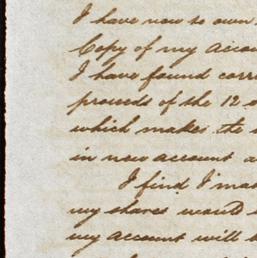 I have now to own
Copy of my accou
I have found corr
proceeds of the 12
which makes the
in new account a
I find I ma
my shares would
my account will b